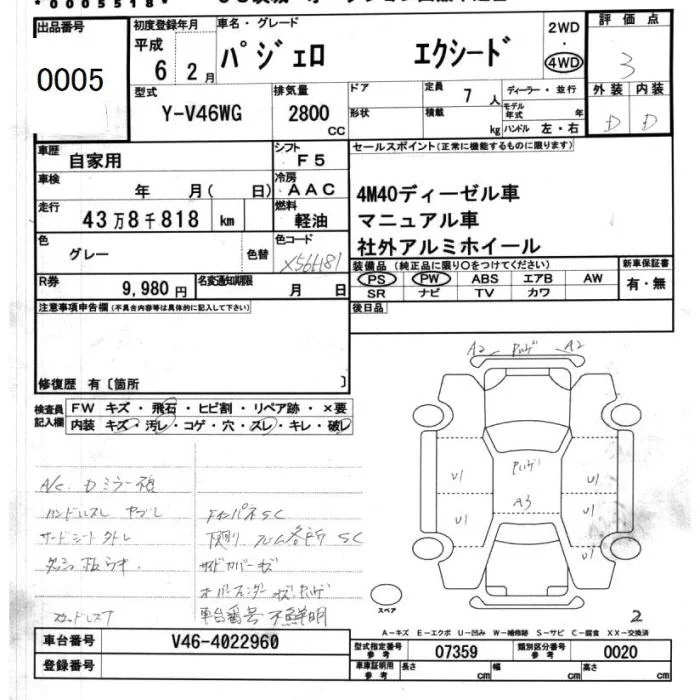 *0005518*
出品番号
0005
初度登録年月
平成 6 2月
車名・グレード
パジェロ エクシード
2WD
・
4WD
評価点
3
型式
Y-V46WG
排気量
2800
CC
ドア
形状
定員
7人
積載
kg
ディーラー・並行
モデル年式 年
ハンドル 左・右
外装 内装
D D
車歴
自家用
シフト
F5
車検
年 月( 日)
冷房
AAC
走行
43万8千818 km
燃料
軽油
色
グレー
色替
色コード
X56H81
R券
9,980円
名変通知期限
月 日
セールスポイント(正常に機能するものに限ります)
4M40ディーゼル車
マニュアル車
社外アルミホイール
装備品 (純正品に限り○をつけてください)
PS PW ABS エアB AW
SR ナビ TV カワ
新車保証書
有・無
後日品
注意事項申告欄(不具合内容等は具体的に記入して下さい)
修復歴 有〔箇所 〕
検査員記入欄
FW キズ・飛石・ヒビ割・リペア跡・×要
内装 キズ・汚レ・コゲ・穴・スレ・キレ・破レ
A/C Dミラー
ハンドルスレ ヤブレ
サードシート
SC
下廻リ フレーム各所 SC
サイドカバー
オーバーフェンダー
車台番号 不鮮明
A2 A2
U1 U1
A3
U1 U1
スペア
2
A-キズ E-エクボ U-凹み W-補修跡 S-サビ C-腐食 XX-交換済
車台番号
V46-4022960
登録番号
型式指定番号
参考
07359
類別区分番号
参考
0020
車庫証明用
参考
長さ cm
幅 cm
高さ cm